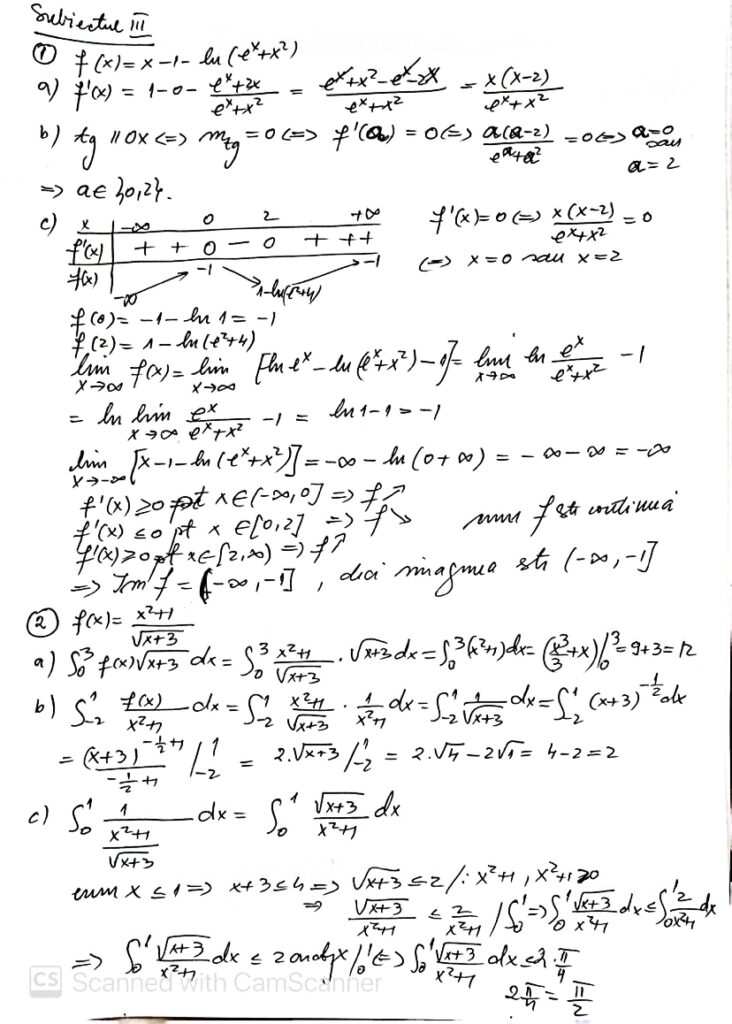 Subiectul III
① f(x) = x-1-ln(e^x+x²)
a) f'(x) = 1-0- (e^x+2x)/(e^x+x²) = (e^x+x²-e^x-2x)/(e^x+x²) = x(x-2)/(e^x+x²)
b) tg || OX <=> m_tg = 0 <=> f'(a) = 0 <=> a(a-2)/(e^a+a²) = 0 <=> a=0 sau a=2
=> a∈{0,2}.
c) x | -∞ 0 2 +∞ f'(x)=0 <=> x(x-2)/(e^x+x²) = 0
f'(x) | + + 0 - 0 + + + <=> x=0 sau x=2
f(x) | -∞ ↗ -1 ↘ 1-ln(e²+4) ↗ -1
f(0) = -1-ln 1 = -1
f(2) = 1-ln(e²+4)
lim x→∞ f(x) = lim x→∞ [ln e^x - ln(e^x+x²) - 1] = lim x→∞ ln e^x/(e^x+x²) - 1
= ln lim x→∞ e^x/(e^x+x²) - 1 = ln 1-1 = -1
lim x→-∞ [x-1-ln(e^x+x²)] = -∞ - ln(0+∞) = -∞-∞ = -∞
f'(x) ≥0 pt x∈(-∞,0] => f↗
f'(x) ≤0 pt x∈[0,2] => f↘ cum f este continuă
f'(x) ≥0 pt x∈[2,∞) => f↗
=> Im f = (-∞,-1], deci imaginea este (-∞,-1]
② f(x) = (x²+1)/√(x+3)
a) ∫₀³ f(x)√(x+3) dx = ∫₀³ (x²+1)/√(x+3) · √(x+3) dx = ∫₀³(x²+1)dx = (x³/3+x)|₀³ = 9+3 = 12
b) ∫₋₂¹ f(x)/(x²+1) dx = ∫₋₂¹ (x²+1)/√(x+3) · 1/(x²+1) dx = ∫₋₂¹ 1/√(x+3) dx = ∫₋₂¹ (x+3)^(-1/2) dx
= (x+3)^(-1/2+1)/(-1/2+1) |₋₂¹ = 2·√(x+3) |₋₂¹ = 2·√4 - 2√1 = 4-2 = 2
c) ∫₀¹ 1/((x²+1)/√(x+3)) dx = ∫₀¹ √(x+3)/(x²+1) dx
cum x ≤ 1 => x+3 ≤ 4 => √(x+3) ≤ 2 /: x²+1, x²+1>0
=> √(x+3)/(x²+1) ≤ 2/(x²+1) /∫₀¹ => ∫₀¹ √(x+3)/(x²+1) dx ≤ ∫₀¹ 2/(x²+1) dx
=> ∫₀¹ √(x+3)/(x²+1) dx ≤ 2 arctgx |₀¹ <=> ∫₀¹ √(x+3)/(x²+1) dx ≤ 2·π/4
2π/4 = π/2
CS Scanned with CamScanner